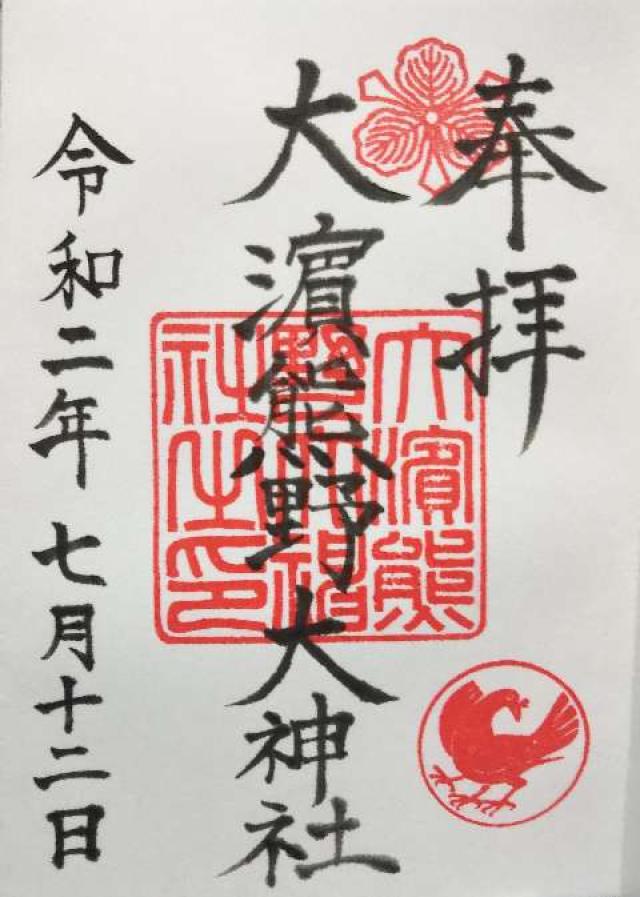 奉拝
大濱熊野大神社
大濱熊
野大神
社之印
令和二年七月十二日